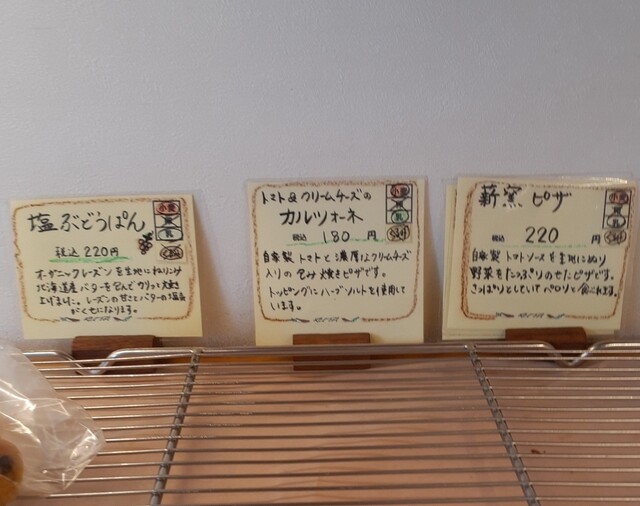 塩ぶどうぱん
税込 220円
小麦
乳
くるみ
オーガニックレーズンを生地にねりこみ
北海道産バターを包んでカリッと焼き
上げました。レーズンの甘さとバターの塩気
がくせになります。
トマト&クリームチーズの
カルツォーネ
税込 180 円
小麦
乳
くるみ
自家製トマトと濃厚なクリームチーズ
入りの包み焼きピザです。
トッピングにハーブソルトを使用して
います。
薪窯 ピザ
税込 220 円
小麦
くるみ
自家製 トマトソースを生地にぬり
野菜をたっぷりのせたピザです。
さっぱりとしていてペロリと食べれます。